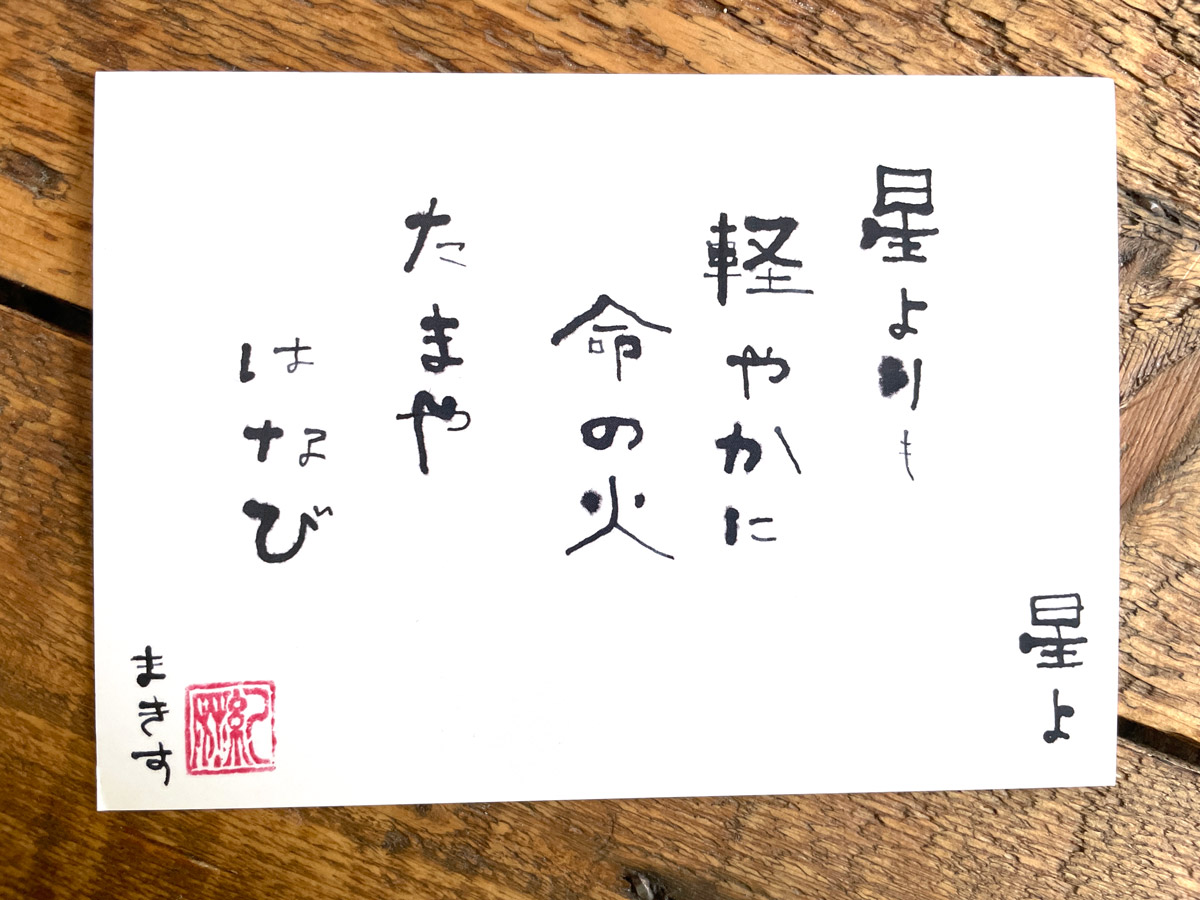 星よ
星よりも
軽やかに
命の火
たまや
はなび
まきす